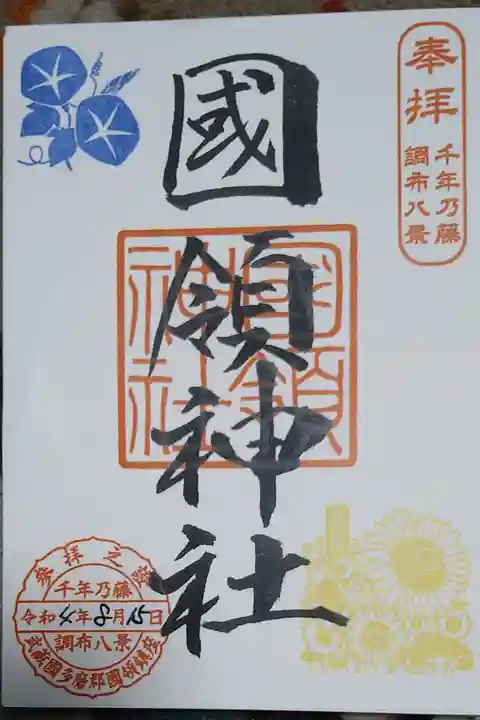 奉拝
千年乃藤
調布八景
國領神社
國領
神社
參拝之証
千年乃藤
令和4年8月15日
調布八景
武蔵國多磨郡國領鎮座